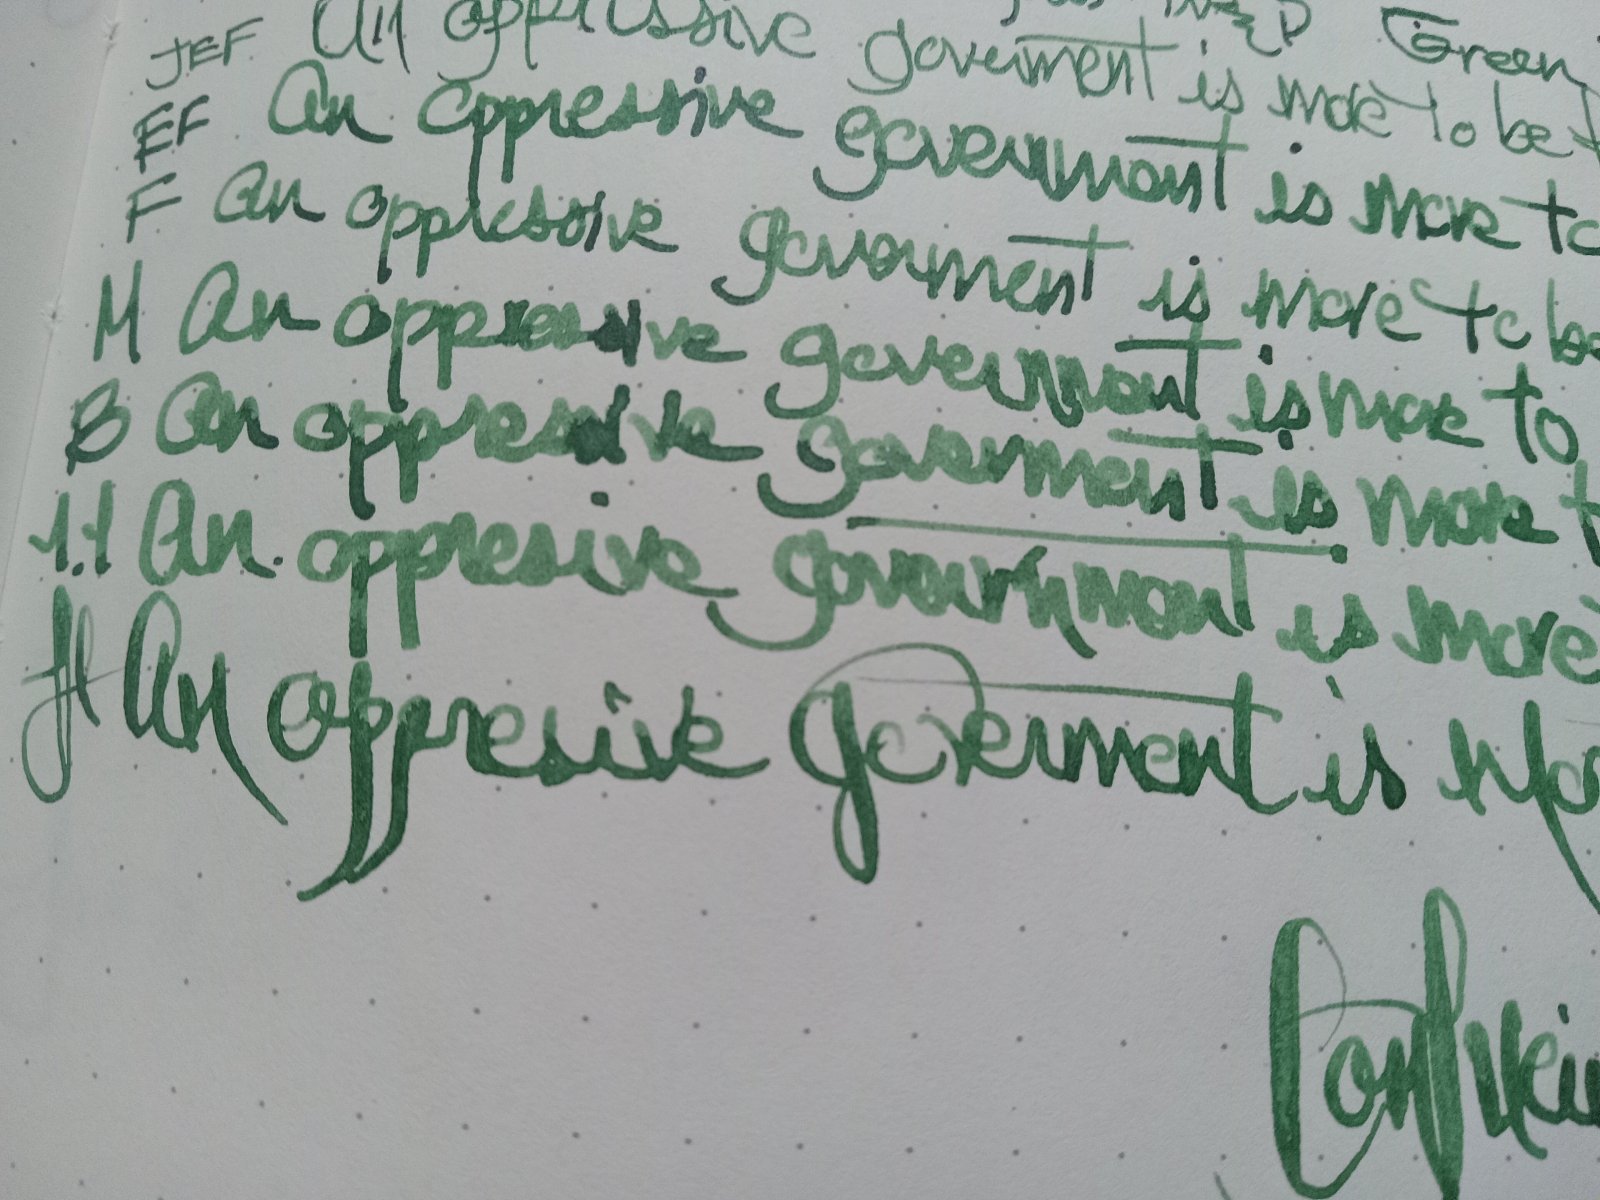 Green
JEF An oppressive goverment is more to be
EF An oppressive government is more to
F An oppressive government is more to be
M An oppressive government is more to
B An oppressive goverment is more
1.1 An oppresive government is more
fl An oppresive goverment is
Confucius